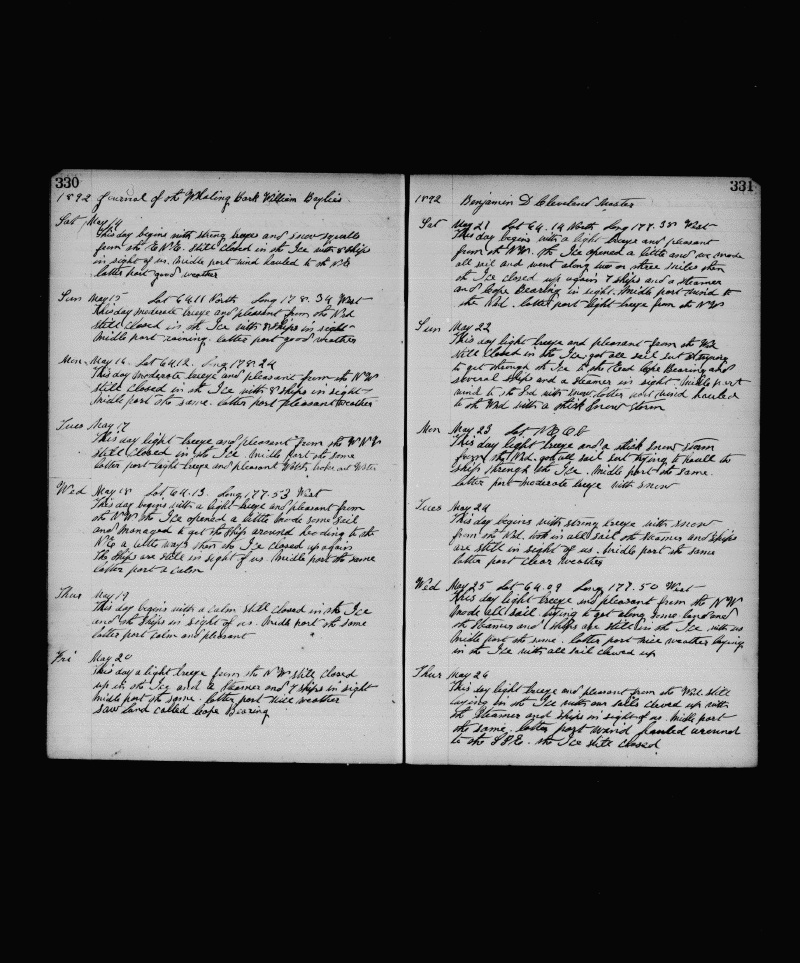 330
1892 Journal of the Whaling Bark William Baylies
Sat May 14
This day begins with strong breeze and snow squalls
from the E.N.E. still closed in the Ice with 8 ships
in sight of us. midle part wind hauled to the N.E
latter part good weather
Sun May 15 Lat 64.11 North Long 178.34 West
this day moderate breeze and pleasant from the N.d
still closed in the Ice with 8 ships in sight
midle part raining. latter part good weather
Mon May 16. Lat 64.12. Long 178.24
This day moderate breeze and pleasant from the N.W
still closed in the Ice with 8 ships in sight
midle part the same. latter part pleasant weather
Tues May 17
This day light breeze and pleasant from the W.N.W
still closed in the Ice. midle part the same
latter part light breeze and pleasant
Wed May 18 Lat 64.13. Long 177.53 West
This day begins with a light breeze and pleasant from
the N.W. the Ice opened a little made some sail
and managed to get the ship around heading to the
N.E a little way then the Ice closed up again
the ships are still in sight of us. midle part the same
latter part a calm
Thur May 19
This day begins with a calm still closed in the Ice
and the ships in sight of us. midle part the same
latter part calm and pleasant
Fri May 20
this day a light breeze from the N.W. still closed
up in the Ice and a steamer and 7 ships in sight
midle part the same. latter part nice weather
saw land called Cape Bearing
331
1892 Benjamin D Cleveland Master
Sat May 21 Lat 64.14 North Long 177.38 West
This day begins with a light breeze and pleasant
from the N.W. the Ice opened a little and we made
all sail and went along two or three miles then
the Ice closed up again 7 ships and a steamer
and Cape Bearing in sight. midle part wind to
the N.d. latter part light breeze from the N.W
Sun May 22
This day light breeze and pleasant from the
still closed in the Ice. got all sail set trying
to get through the Ice to the land Cape Bearing and
several ships and a steamer in sight. midle part
wind to the with snow. latter part wind hauled
to the with a thick snow storm
Mon May 23 Lat
This day light breeze and a thick snow storm
from the got all sail set trying to the
ship through the Ice. midle part the same.
latter part moderate breeze with snow
Tues May 24
This day begins with strong breeze with snow
from the N.d. took in all sail the steamer and ships
are still in sight of us. midle part the same
latter part clear weather
Wed May 25 Lat 64.09 Long 177.50 West
This day light breeze and pleasant from the N.W
made all sail trying to get along some. land and
the steamer and ships are still in the Ice with us
midle part the same. latter part nice weather laying
in the Ice with all sail clewed up
Thur May 26
This day light breeze and pleasant from the still
laying in the Ice with our sails clewed up with
the steamer and ships in sight of us. midle part
the same. latter part wind hauled around
to the S.S.E. the Ice still closed